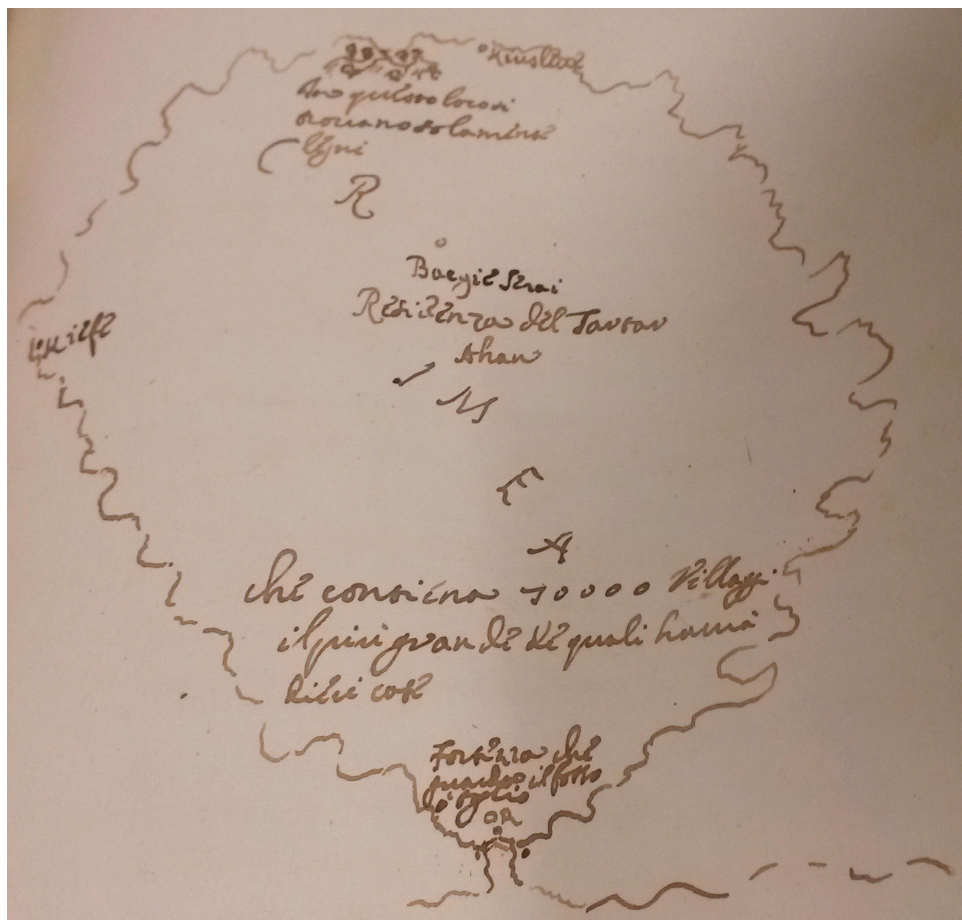 In questo locosi
trovano solamente
legni
R
Bacgie Serai
Residenza del Tartar
khan
M
E
A
che contiene 10000 Villaggi
il piu grande de quali havra
dieci case
Fortezza che
guarda il fosso
OR